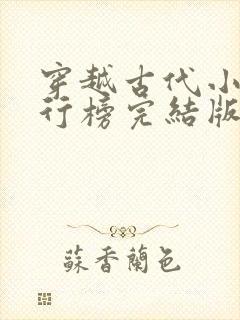 穿越古代小
行榜完結版
蘇香蘭色